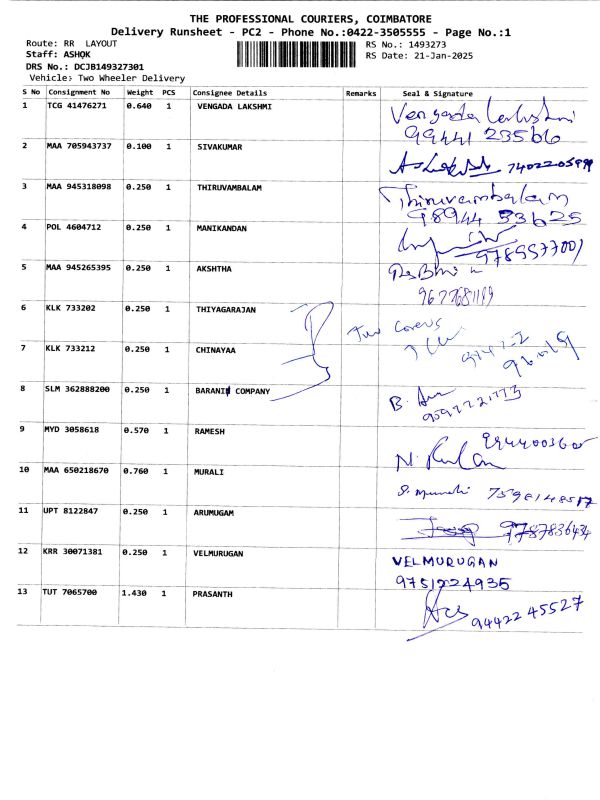 THE PROFESSIONAL COURIERS, COIMBATORE
Delivery Runsheet - PC2 - Phone No.:0422-3505555 - Page No.:1
Route: RR LAYOUT RS No.: 1493273
Staff: ASHOK RS Date: 21-Jan-2025
DRS No.: DCJB149327301
Vehicle: Two Wheeler Delivery
S No Consignment No Weight PCS Consignee Details Remarks Seal & Signature
1 TCG 41476271 0.640 1 VENGADA LAKSHMI Vengada Lakshmi
99441 23566
2 MAA 705943737 0.100 1 SIVAKUMAR
3 MAA 945318098 0.250 1 THIRUVAMBALAM Thiruvambalam
98944 33625
4 POL 4604712 0.250 1 MANIKANDAN
9789577001
5 MAA 945265395 0.250 1 AKSHTHA
6 KLK 733202 0.250 1 THIYAGARAJAN
7 KLK 733212 0.250 1 CHINAYAA
8 SLM 362888200 0.250 1 BARANI COMPANY B.
9 MYD 3058618 0.570 1 RAMESH
N.
10 MAA 650218670 0.760 1 MURALI S. Murali 7598148517
11 UPT 8122847 0.250 1 ARUMUGAM 9787836434
12 KRR 30071381 0.250 1 VELMURUGAN VELMURUGAN
9751224935
13 TUT 7065700 1.430 1 PRASANTH 94422 45527